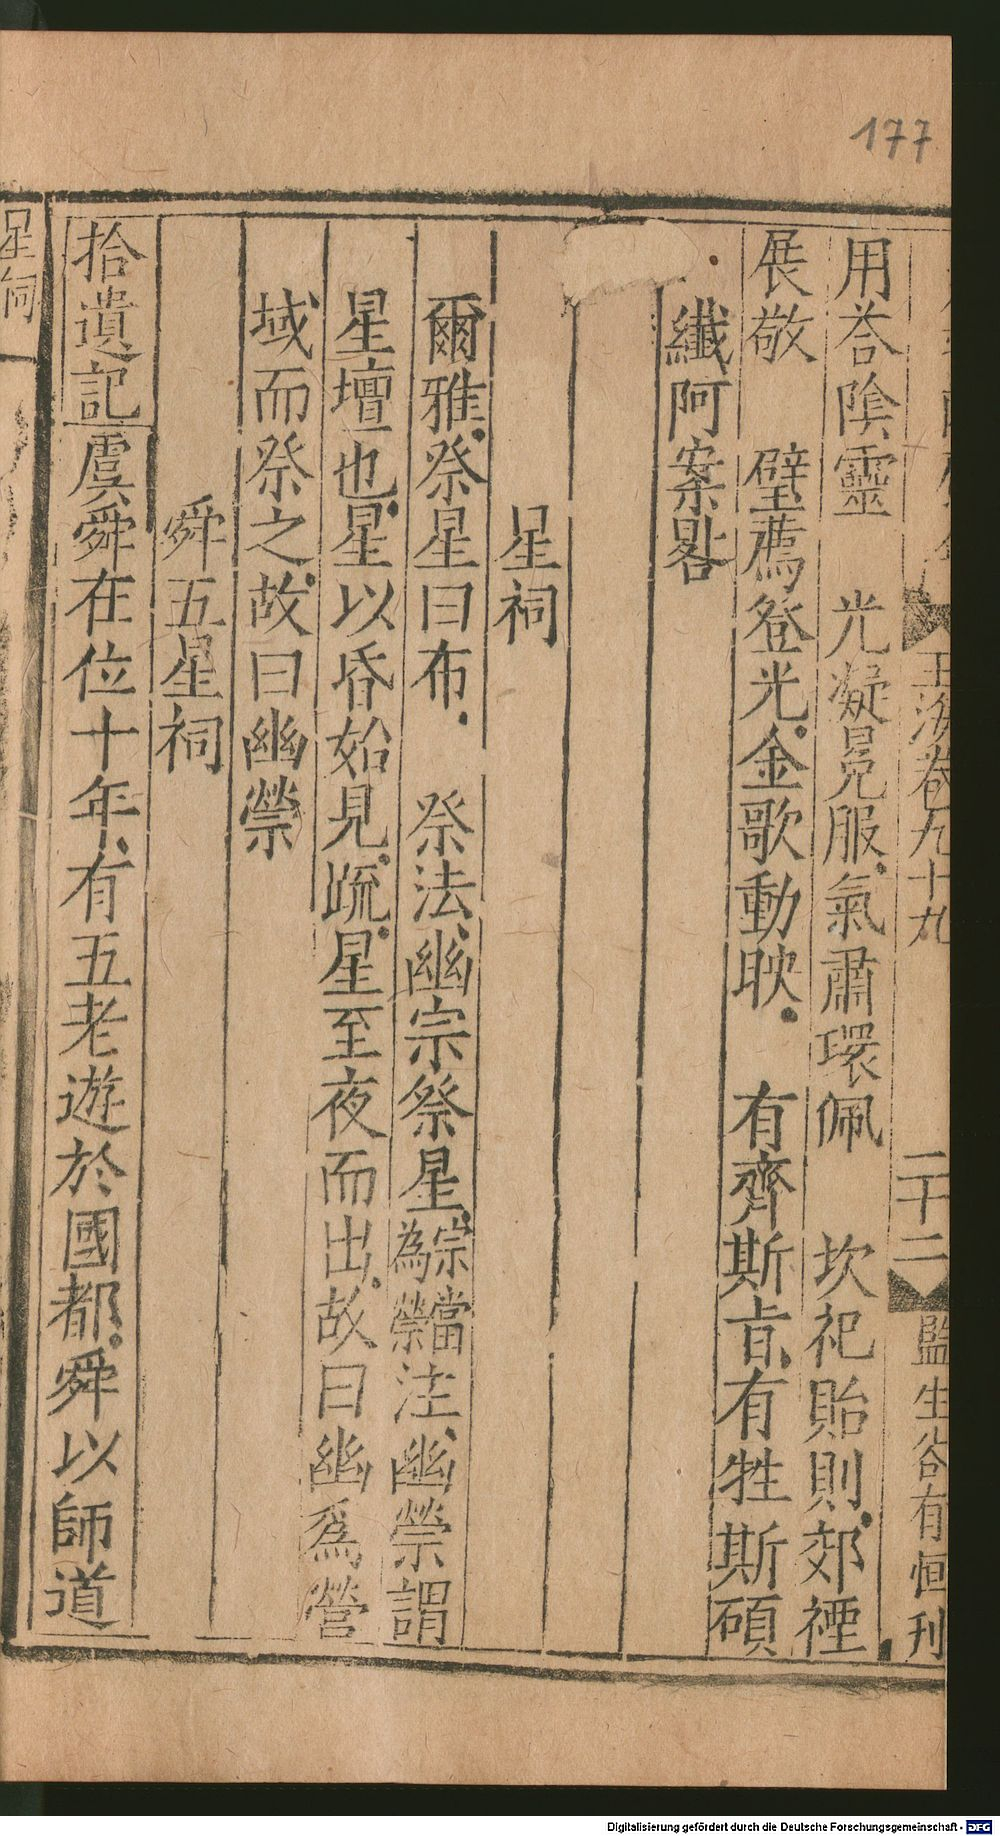 177
玉海卷九十九 二十二 監生谷有恒刊
用荅陰靈 光凝冕服氣肅環佩 坎祀貽則郊禋
展敬 璧薦登光金歌動映 有齊斯㫖有牲斯碩
纖阿案晷
星祠
爾雅祭星曰布 祭法幽宗祭星宗當為禜注幽禜謂
星壇也星以昏始見䟽星至夜而出故曰幽為營
域而祭之故曰幽禜
舜五星祠
拾遺記虞舜在位十年有五老遊於國都舜以師道
星祠
Digitalisierung gefördert durch die Deutsche Forschungsgemeinschaft - DFG